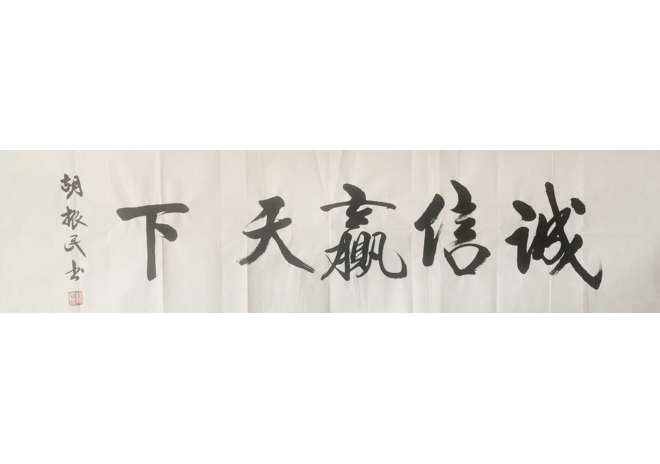 诚信赢天下
胡振民书